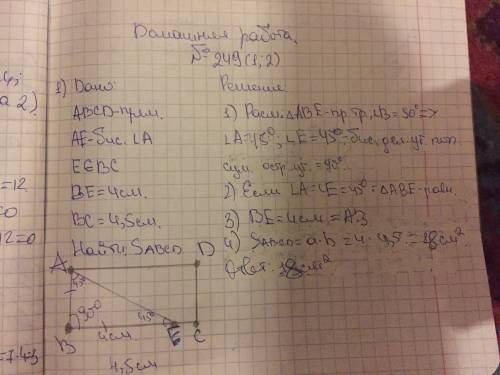 Домашняя работа.
№249(1;2)
1) Дано:
ABCD-прям.
AE-бис. ∠A
E∈BC
BE=4см.
BC=4,5см.
Найти: SABCD
Решение:
1) Расм. ΔABE-пр.тр, ∠B=90°=>
∠A=45°, ∠E=45°=бис. дел. уг. поп.
сум. остр. уг. =90°.
2) Если ∠A=∠E=45°=ΔABE-равн.
3) BE=4см.=AB
4) SABCD=a·b=4·4,5=18см²
Ответ: 18см²
A
D
45°
90°
45°
4см
E
B
C
4,5см
а 2)
=12
12=0
=7-4=3